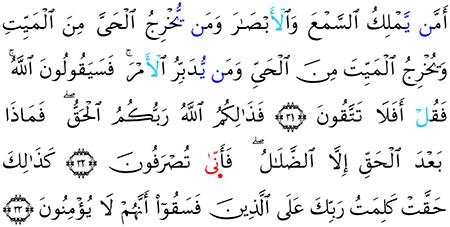 أَمَّن يَّمْلِكُ ٱلسَّمْعَ وَٱلْأَبْصَٰرَ وَمَن يُّخْرِجُ ٱلْحَىَّ مِنَ ٱلْمَيِّتِ
وَيُخْرِجُ ٱلْمَيِّتَ مِنَ ٱلْحَىِّ وَمَن يُّدَبِّرُ ٱلْأَمْرَ ۚ فَسَيَقُولُونَ ٱللَّهُ ۚ
فَقُلْ أَفَلَا تَتَّقُونَ ﴿٣١﴾ فَذَٰلِكُمُ ٱللَّهُ رَبُّكُمُ ٱلْحَقُّ ۖ فَمَاذَا
بَعْدَ ٱلْحَقِّ إِلَّا ٱلضَّلَٰلُ ۖ فَأَنَّىٰ تُصْرَفُونَ ﴿٣٢﴾ كَذَٰلِكَ
حَقَّتْ كَلِمَتُ رَبِّكَ عَلَى ٱلَّذِينَ فَسَقُوٓا۟ أَنَّهُمْ لَا يُؤْمِنُونَ ﴿٣٣﴾